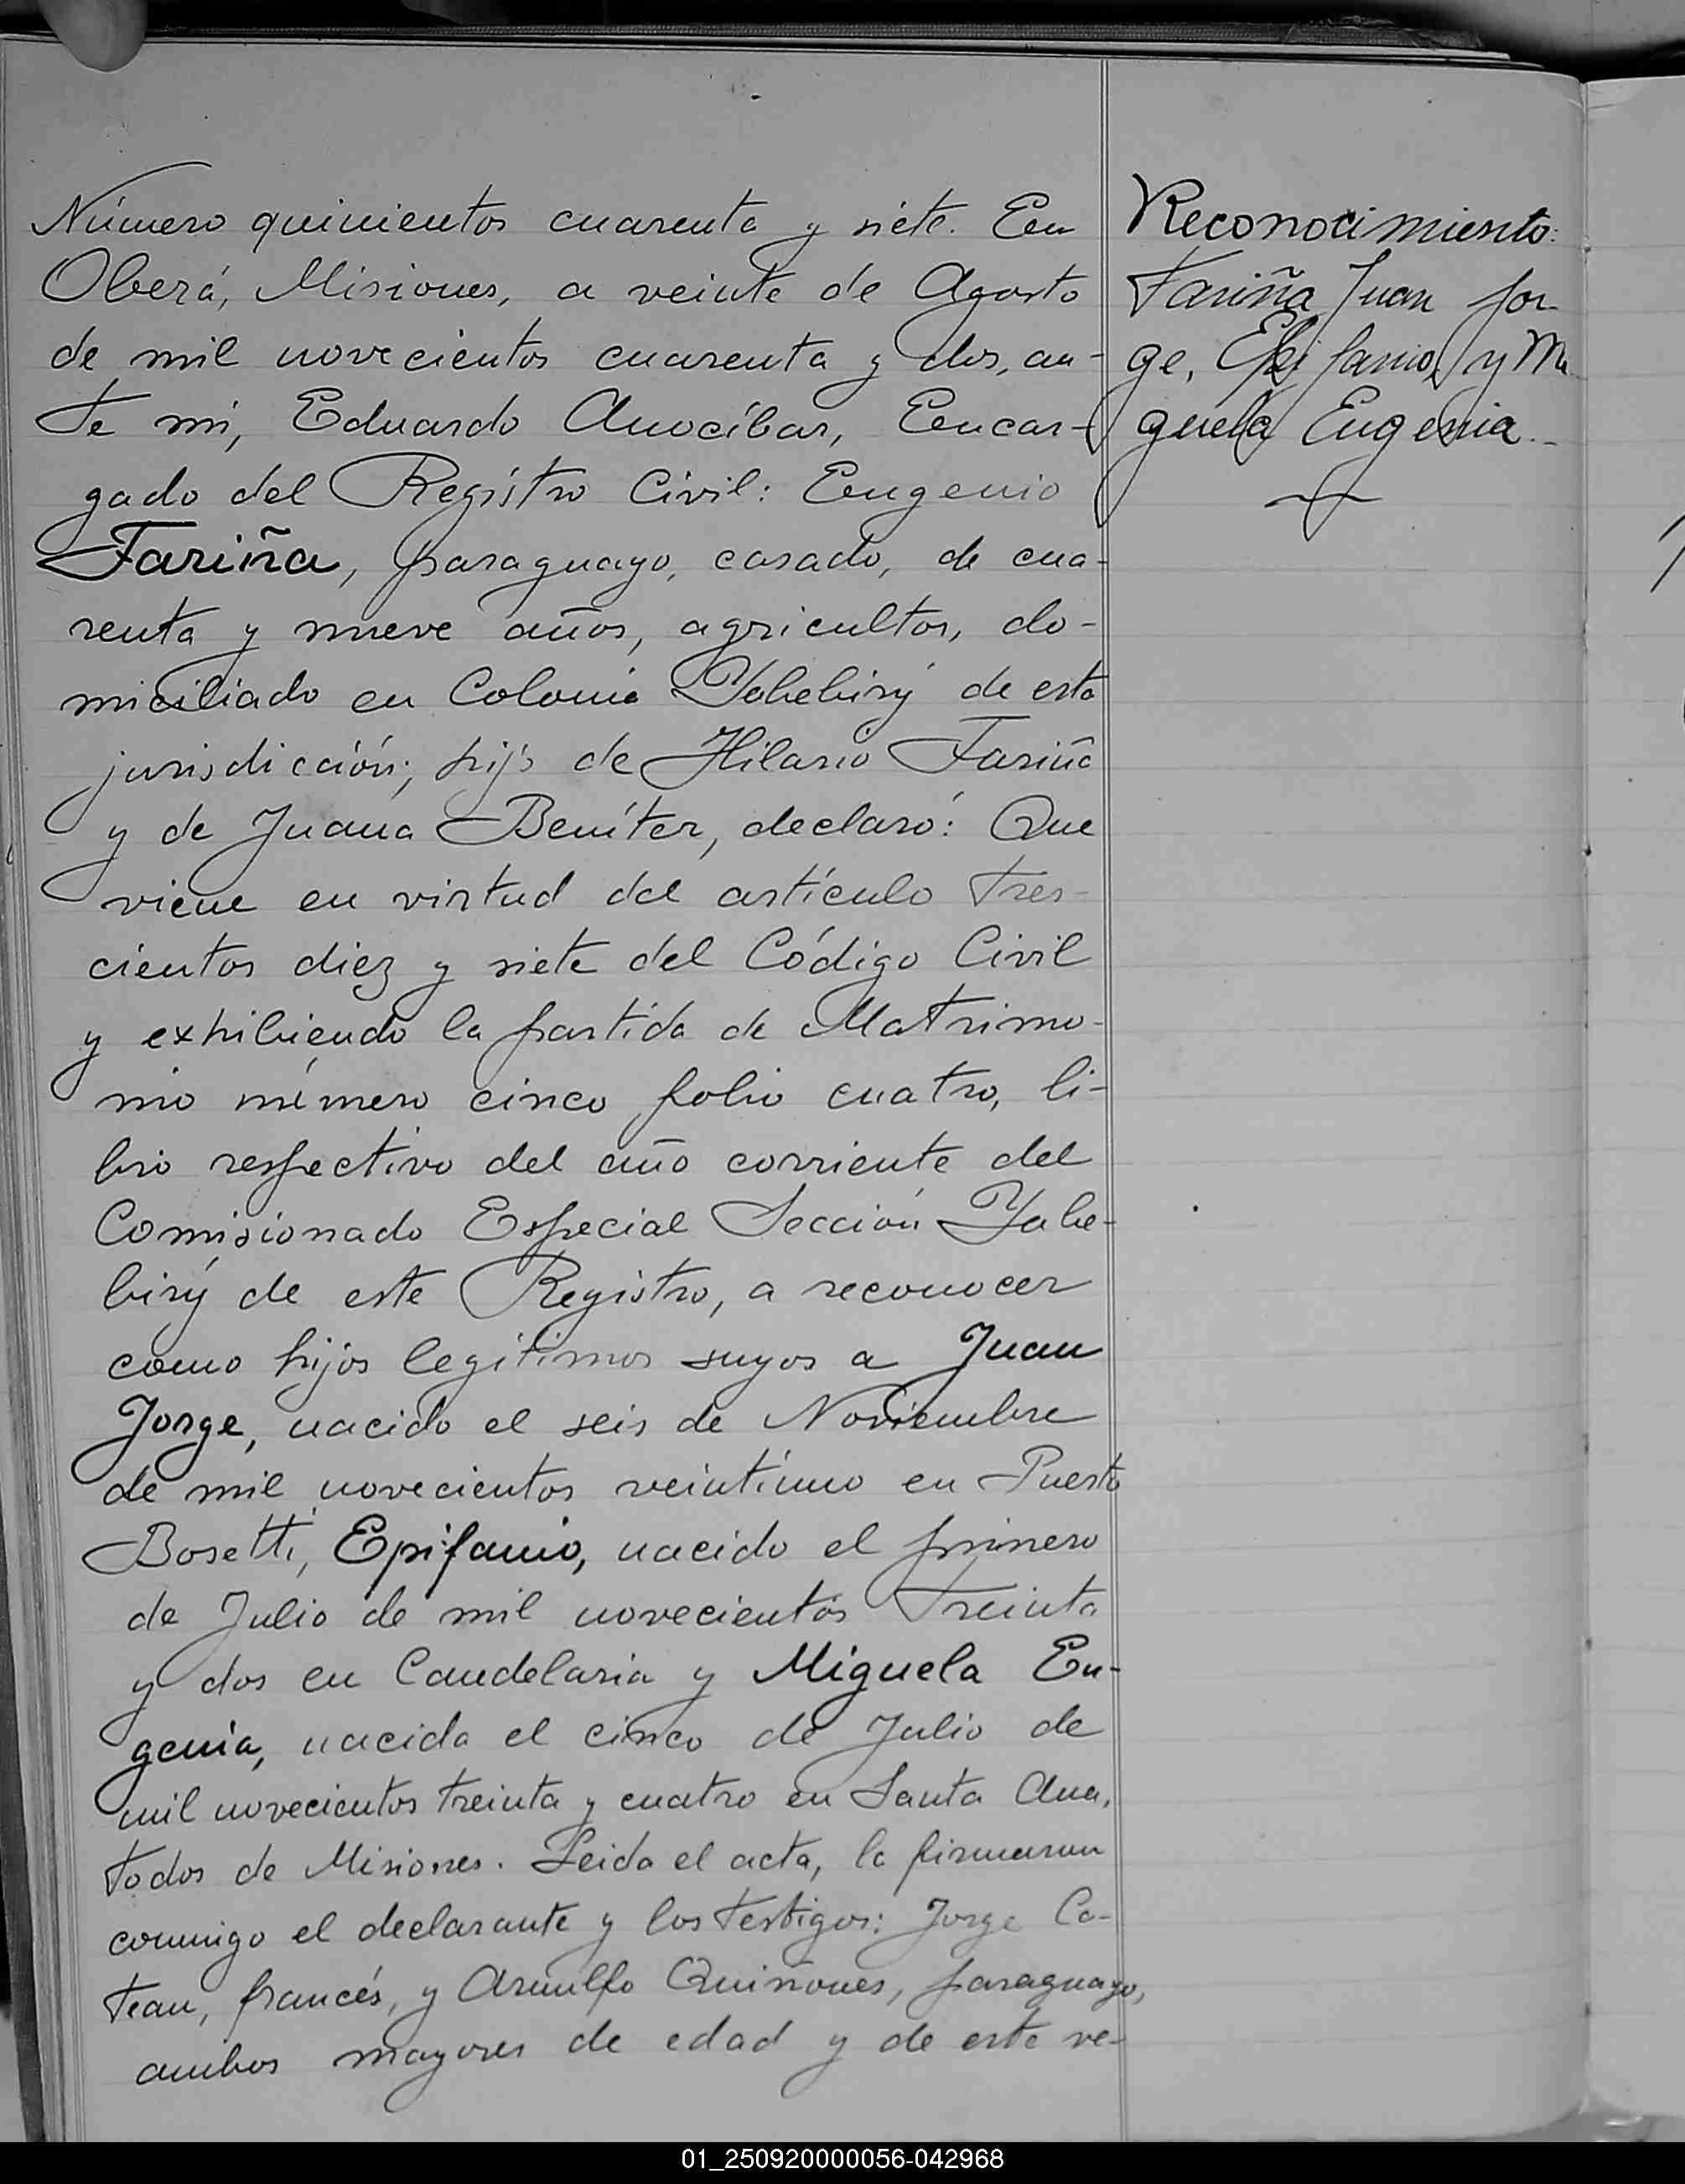 Número quinientos cuarenta y siete. En
Oberá, Misiones, a veinte de Agosto
de mil novecientos cuarenta y dos, an-
te mi, Eduardo Anocíbar, Encar-
gado del Registro Civil: Eugenio
Fariña, paraguayo, casado, de cua-
renta y nueve años, agricultor, do-
miciliado en Colonia Yabebirý de esta
jurisdicción; hijo de Hilario Fariña
y de Juana Benítez, declaró: Que
viene en virtud del artículo tres-
cientos diez y siete del Código Civil
y exhibiendo la partida de Matrimo-
nio número cinco folio cuatro, li-
bro respectivo del año corriente del
Comisionado Especial Sección Yabe-
birý de este Registro, a reconocer
como hijos legítimos suyos a Juan
Jorge, nacido el seis de Noviembre
de mil novecientos veintiuno en Puerto
Bosetti, Epifanio, nacido el primero
de Julio de mil novecientos treinta
y dos en Candelaria y Miguela Eu-
genia, nacida el cinco de Julio de
mil novecientos treinta y cuatro en Santa Ana,
todos de Misiones. Leida el acta, la firmaron
conmigo el declarante y los testigos: Jorge Co-
teau, francés, y Arnulfo Quiñones, paraguayo,
ambos mayores de edad y de este ve-
Reconocimiento:
Fariña Juan Jor-
ge, Epifanio, y Mi
guela Eugenia.-
01_250920000056-042968